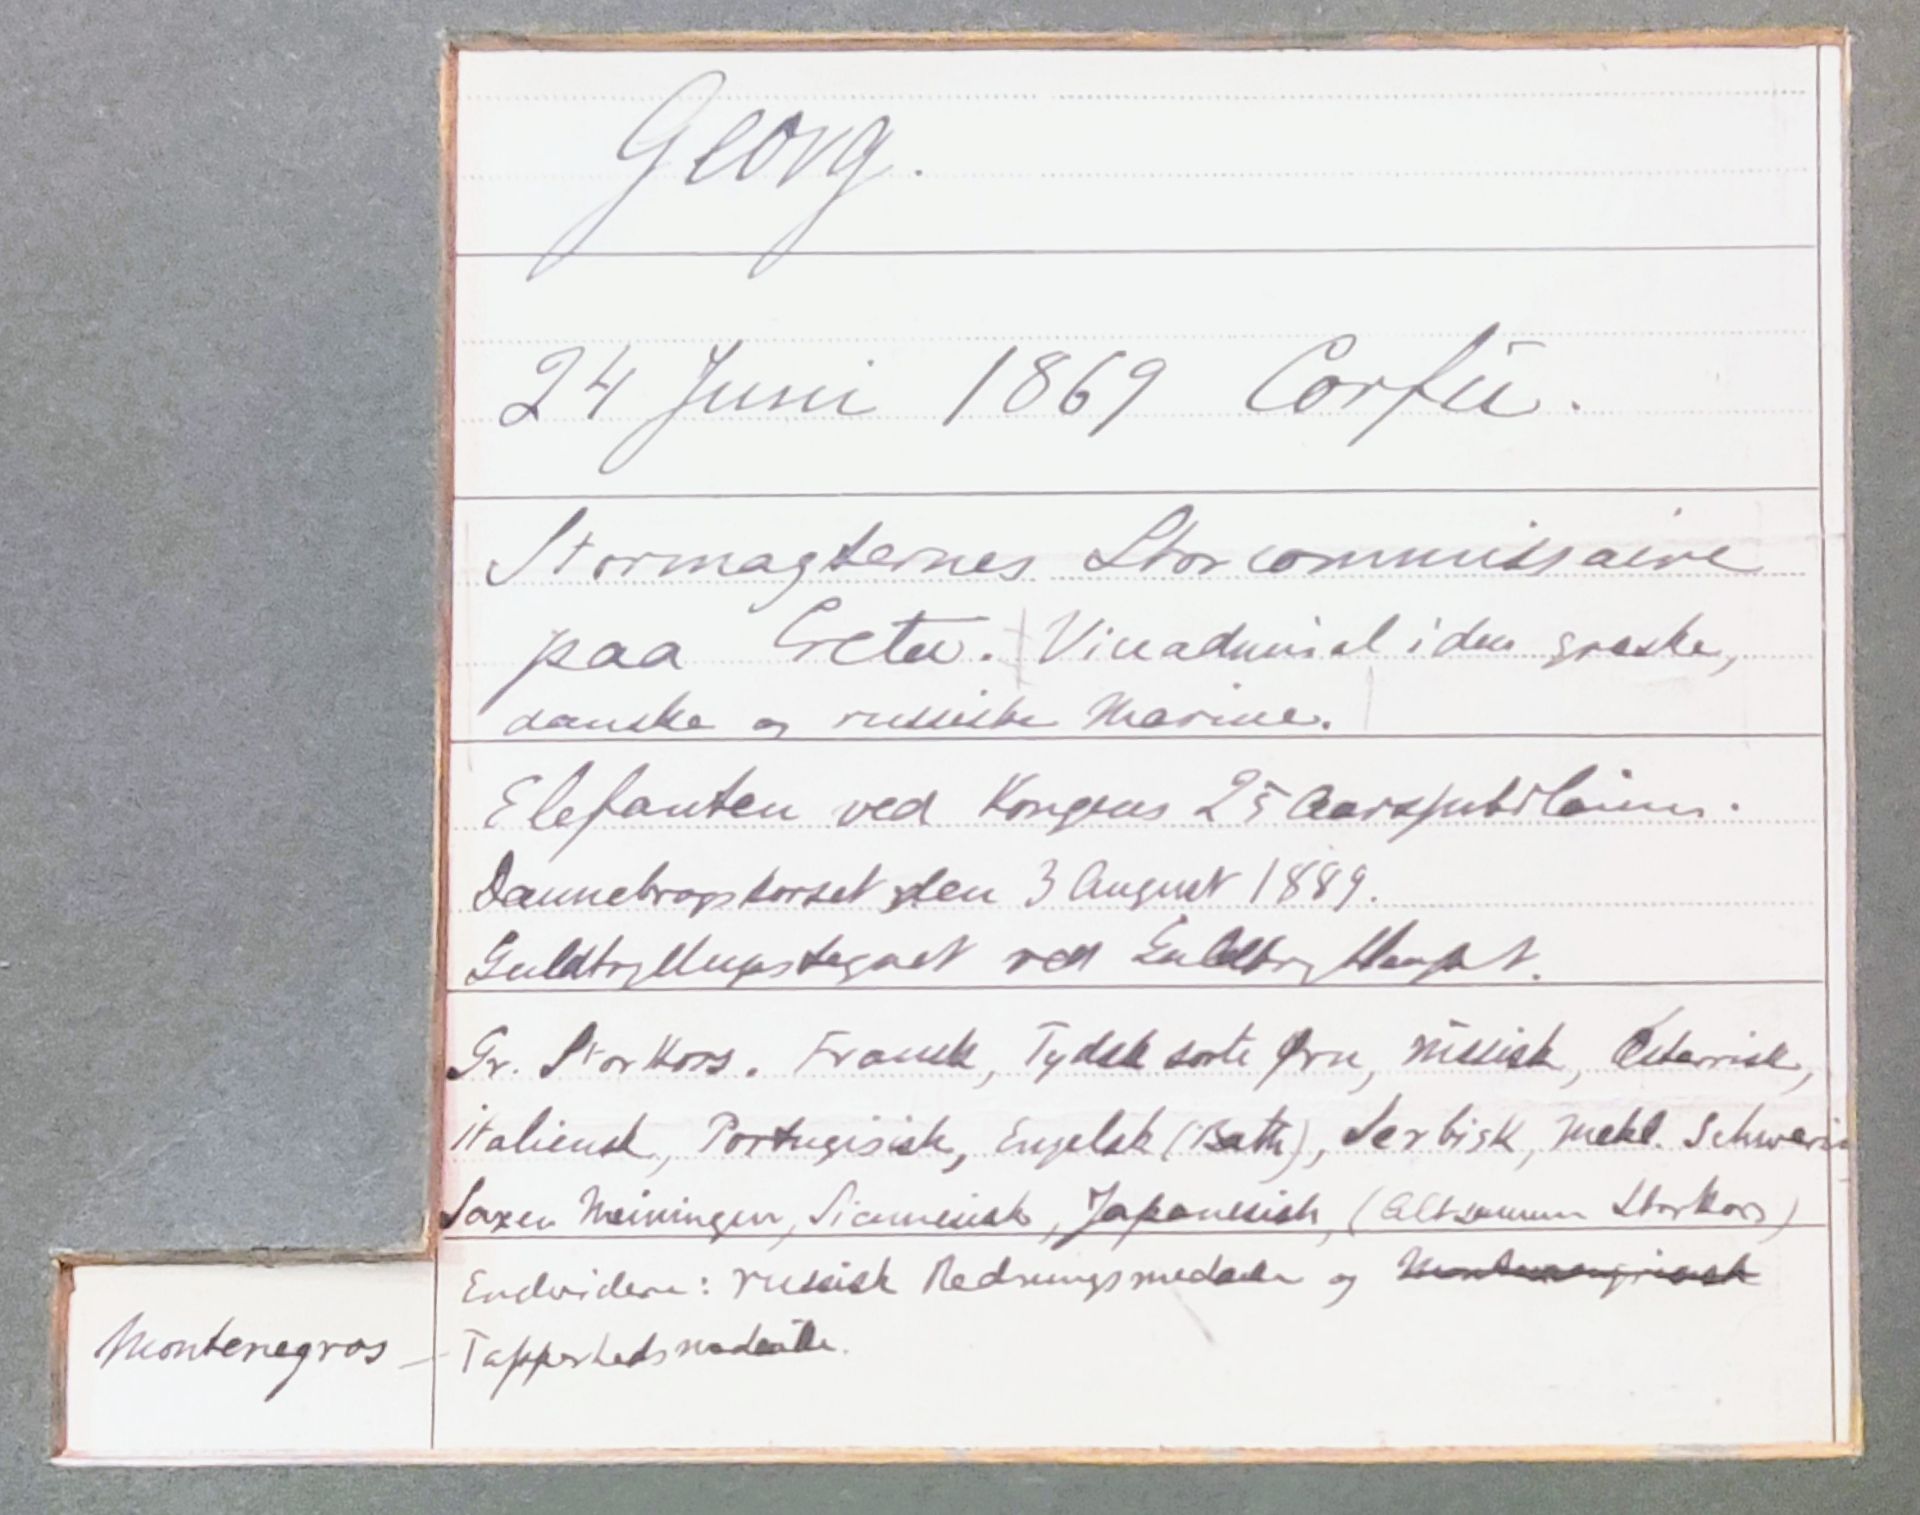 Georg.
24 Juni 1869 Corfu.
Stormagternes Storcommissaire
paa Creta. Viceadmiral i den græske,
danske og russiske Marine.
Elefanten ved Kongens 25 Aarsjubilæum.
Dannebrogskorset den 3 August 1889.
Guldbryllupstegnet ved Guldbryllupet.
Gr. Storkors. Fransk, Tydsk sorte Ørn, russisk, Østerrisk,
italiensk, Portugisisk, Engelsk (Bath), Serbisk, Mekl. Schwerin
Saxen Meiningen, Siamesisk, Japanesisk, (Altsammen Storkors)
Endvidere: russisk Redningsmedaille og Montenegrinsk
Montenegros — Tapperhedsmedaille.